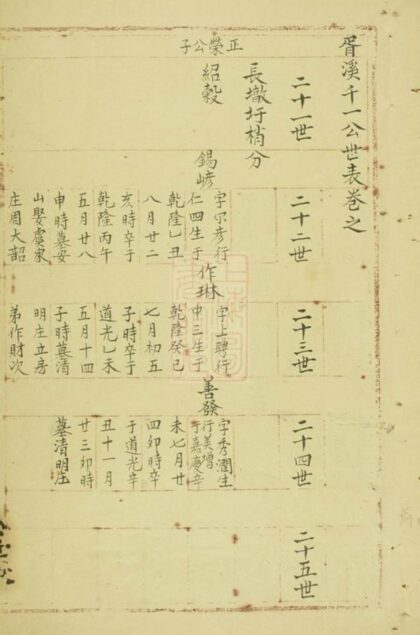 胥溪千一公世表卷之
二十一世
二十二世
二十三世
二十四世
二十五世
長墩圩梢分
正榮公子
紹穀
錫嵃
字尔彥行
仁四生于
乾隆乙丑
八月廿二
亥時辛于
乾隆丙午
五月廿八
申時墓安
山娶虞家
庄周大韶
作琳
字上聘行
申三生于
乾隆癸已
七月初五
子時辛于
道光乙未
五月十四
子時墓清
明庄立房
弟作財次
善發
字秀潤生
行美增
于嘉慶辛
未七月廿
四卯時辛
于道光辛
丑十一月
廿三卯時
墓清明庄